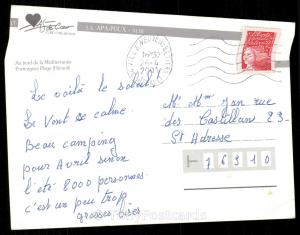 S.A. APA-POUX - ALBI
Au bord de la Méditerranée
Portiragnes Plage (Hérault)
Le voilà le soleil
Le Vent se calme.
Beau camping
pour Avril sinon
l'été 8000 personnes.
c'est un peu trop
grosses bises
M. Mme Jan rue
des Castillan 23
St Adresse
76310